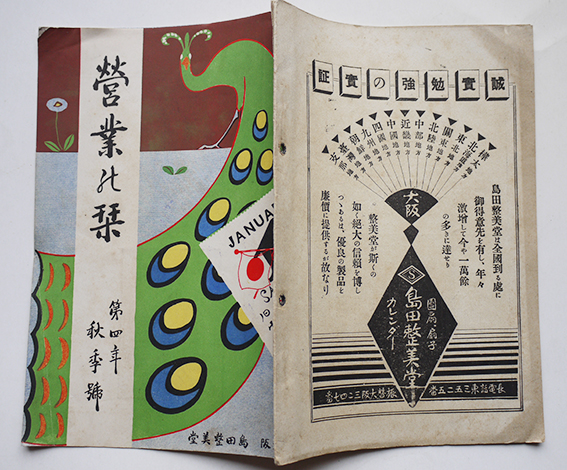 營業の栞
第四年
秋季號
JANUAR
阪 島田整美堂
誠實勉強の實証
樺太地方
北海道地方
東北地方
關東地方
北陸地方
中部地方
近畿地方
中國地方
四國地方
九州地方
朝鮮地方
臺灣地方
支那地方
島田整美堂は全國到る處に
御得意先を有し、年々
激增して今や一萬餘
の多きに達せり
整美堂が斯くの
如く絕大の信賴を博し
つゝあるは、優良の製品を
廉價に提供するが故なり
大阪
S
團扇、扇子
カレンダー
島田整美堂
長電話東三五二五番
振替大阪三二四七番